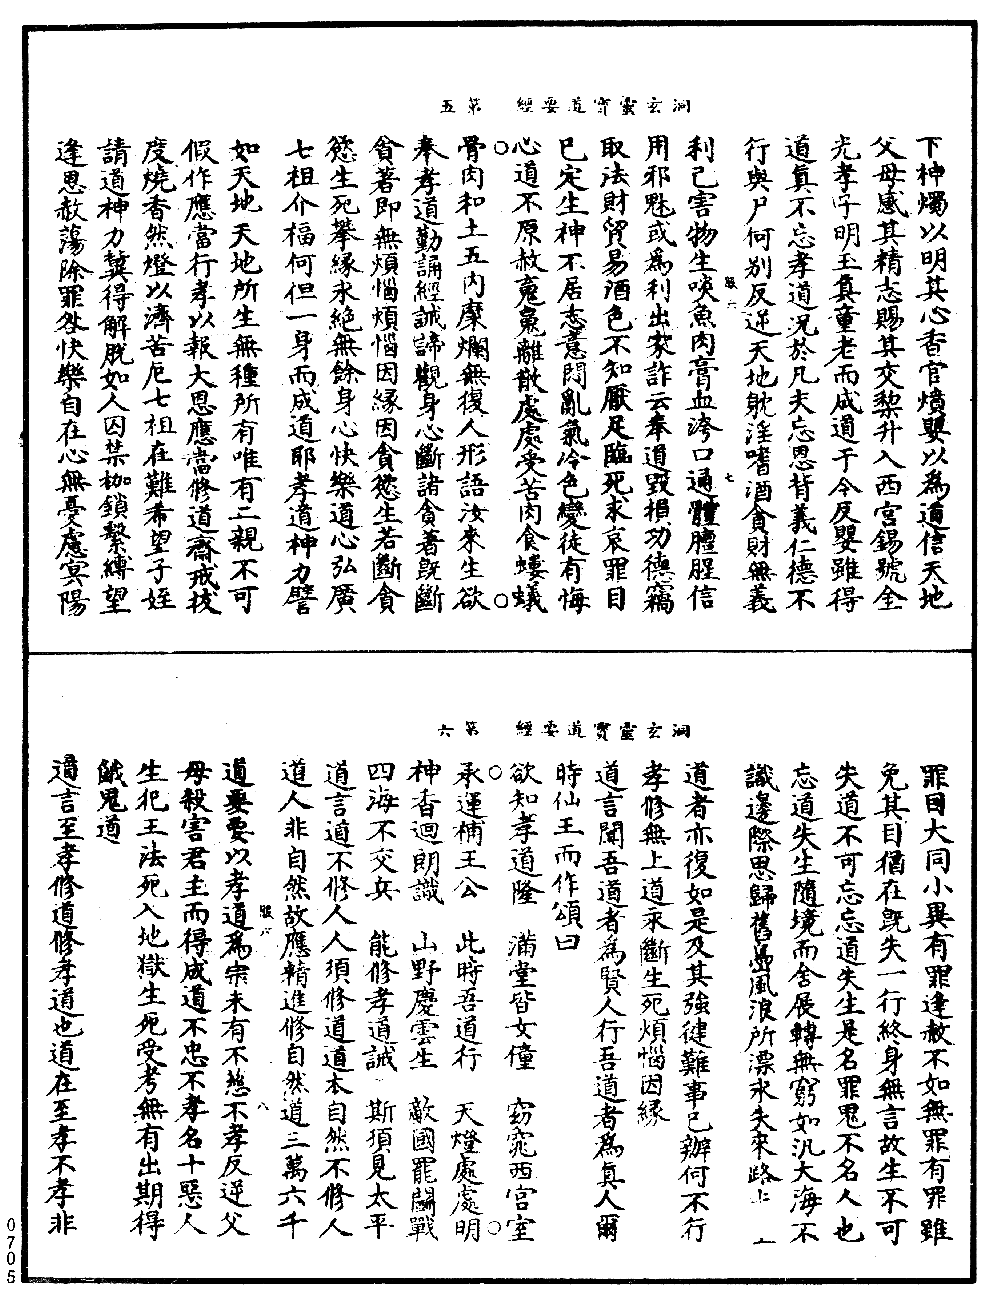 洞玄靈寶道要經　第五
下神燭以明其心香官燌嬰以為通信天地
父母感其精志賜其交棃升入西宮錫號全
光孝子明玉真童老而成道于今反嬰雖得
道真不忘孝道況於凡夫忘恩背義仁德不
行與尸何別反逆天地躭淫嗜酒貪財無義
利己害物生啖魚肉膏血洿口通體膻腥信
用邪魅或為利出家詐云奉道毀損功德竊
取法財貿易酒色不知厭足臨死求哀罪目
已定生神不居志意悶亂氣冷色變徒有悔
心道不原赦䰟梟離散處處受苦肉食螻蟻
骨肉和土五內糜爛無復人形語汝來生欲
奉孝道勤誦經誡諦觀身心斷諸貪著既斷
貪著即無煩惱煩惱因緣因貪慾生若斷貪
慾生死攀緣永絕無餘身心快樂道心弘廣
七祖介福何但一身而成道耶孝道神力譬
如天地天地所生無種所有唯有二親不可
假作應當行孝以報大恩應當修道齋戒拔
度燒香然燈以濟苦厄七祖在難希望子姪
請道神力冀得解脫如人囚禁枷鎖繫縛望
逢恩赦蕩除罪咎快樂自在心無憂慮冥陽
洞玄靈寶道要經　第六
罪目大同小異有罪逢赦不如無罪有罪雖
免其目猶在既失一行終身無言故生不可
失道不可忘忘道失生是名罪鬼不名人也
忘道失生隨境而舍展轉無窮如汎大海不
識邊際思歸舊嶌風浪所漂永失來路上
道者亦復如是及其強健難事已辦何不行
孝修無上道永斷生死煩惱因緣
道言聞吾道者為賢人行吾道者為真人爾
時仙王而作頌曰
欲知孝道隆　滿堂皆女僮　窈窕西宮室
承運補王公　此時吾道行　天燈處處明
神香迴朗識　山野慶雲生　敵國罷鬬戰
四海不交兵　能修孝道誠　斯須見太平
道言道不修人人須修道道本自然不修人
道人非自然故應精進修自然道三萬六千
道要要以孝道為宗未有不慈不孝反逆父
母殺害君主而得成道不忠不孝名十惡人
生犯王法死入地獄生死受考無有出期得
餓鬼道
道言至孝修道修孝道也道在至孝不孝非
0705